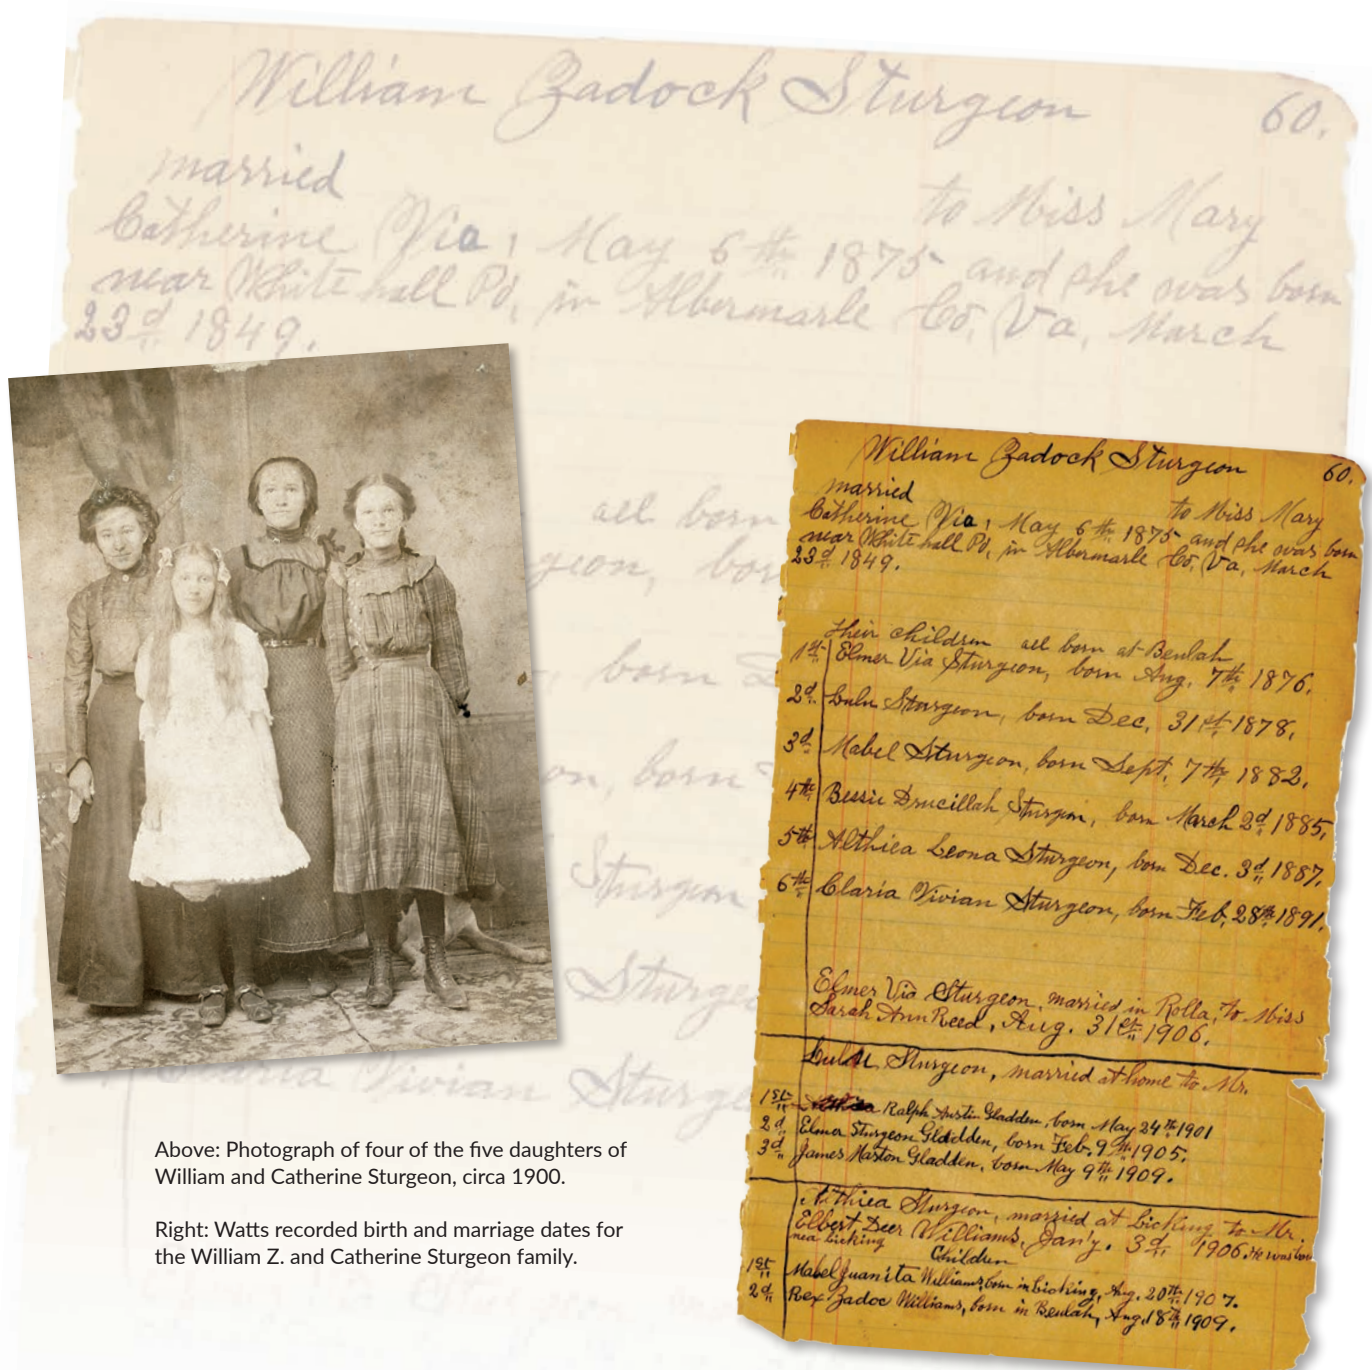 William Zadock Sturgeon 60.
married to Miss Mary
Catherine Via, May 6th 1875 and she was born
near Whitehall Pd, in Albermarle Co, Va, March
23d 1849.
all born
geon, bor
born D
on, born
Sturgeon
Sturge
Vivian Sturge
William Zadock Sturgeon 60.
married to Miss Mary
Catherine Via, May 6th 1875 and she was born
near Whitehall Pd, in Albermarle Co, Va, March
23d 1849.
Their children all born at Beulah
1st Elmer Via Sturgeon, born Aug. 7th 1876.
2d Lulu Sturgeon, born Dec. 31st 1878.
3d Mabel Sturgeon, born Sept. 7th 1882.
4th Bessie Drucillah Sturgeon, born March 2d 1885.
5th Althiea Leona Sturgeon, born Dec. 3d 1887.
6th Claria Vivian Sturgeon, born Feb. 28th 1891.
Elmer Via Sturgeon, married in Rolla, to Miss
Sarah Ann Reed, Aug. 31st 1906.
Lulu Sturgeon, married at home to Mr.
1st Ralph Austin Gladden, born May 24th 1901
2d Elmer Sturgeon Gladden, born Feb. 9th 1905.
3d James Maston Gladden, born May 9th 1909.
Althiea Sturgeon, married at Licking to Mr.
Elbert Deer Williams, Jan'y. 3d 1906. He was born
near Licking
Children
1st Mabel Juanita Williams, born in Licking, Aug. 20th 1907.
2d Rex Zadoc Williams, born in Beulah, Aug. 18th 1909.
Above: Photograph of four of the five daughters of
William and Catherine Sturgeon, circa 1900.
Right: Watts recorded birth and marriage dates for
the William Z. and Catherine Sturgeon family.